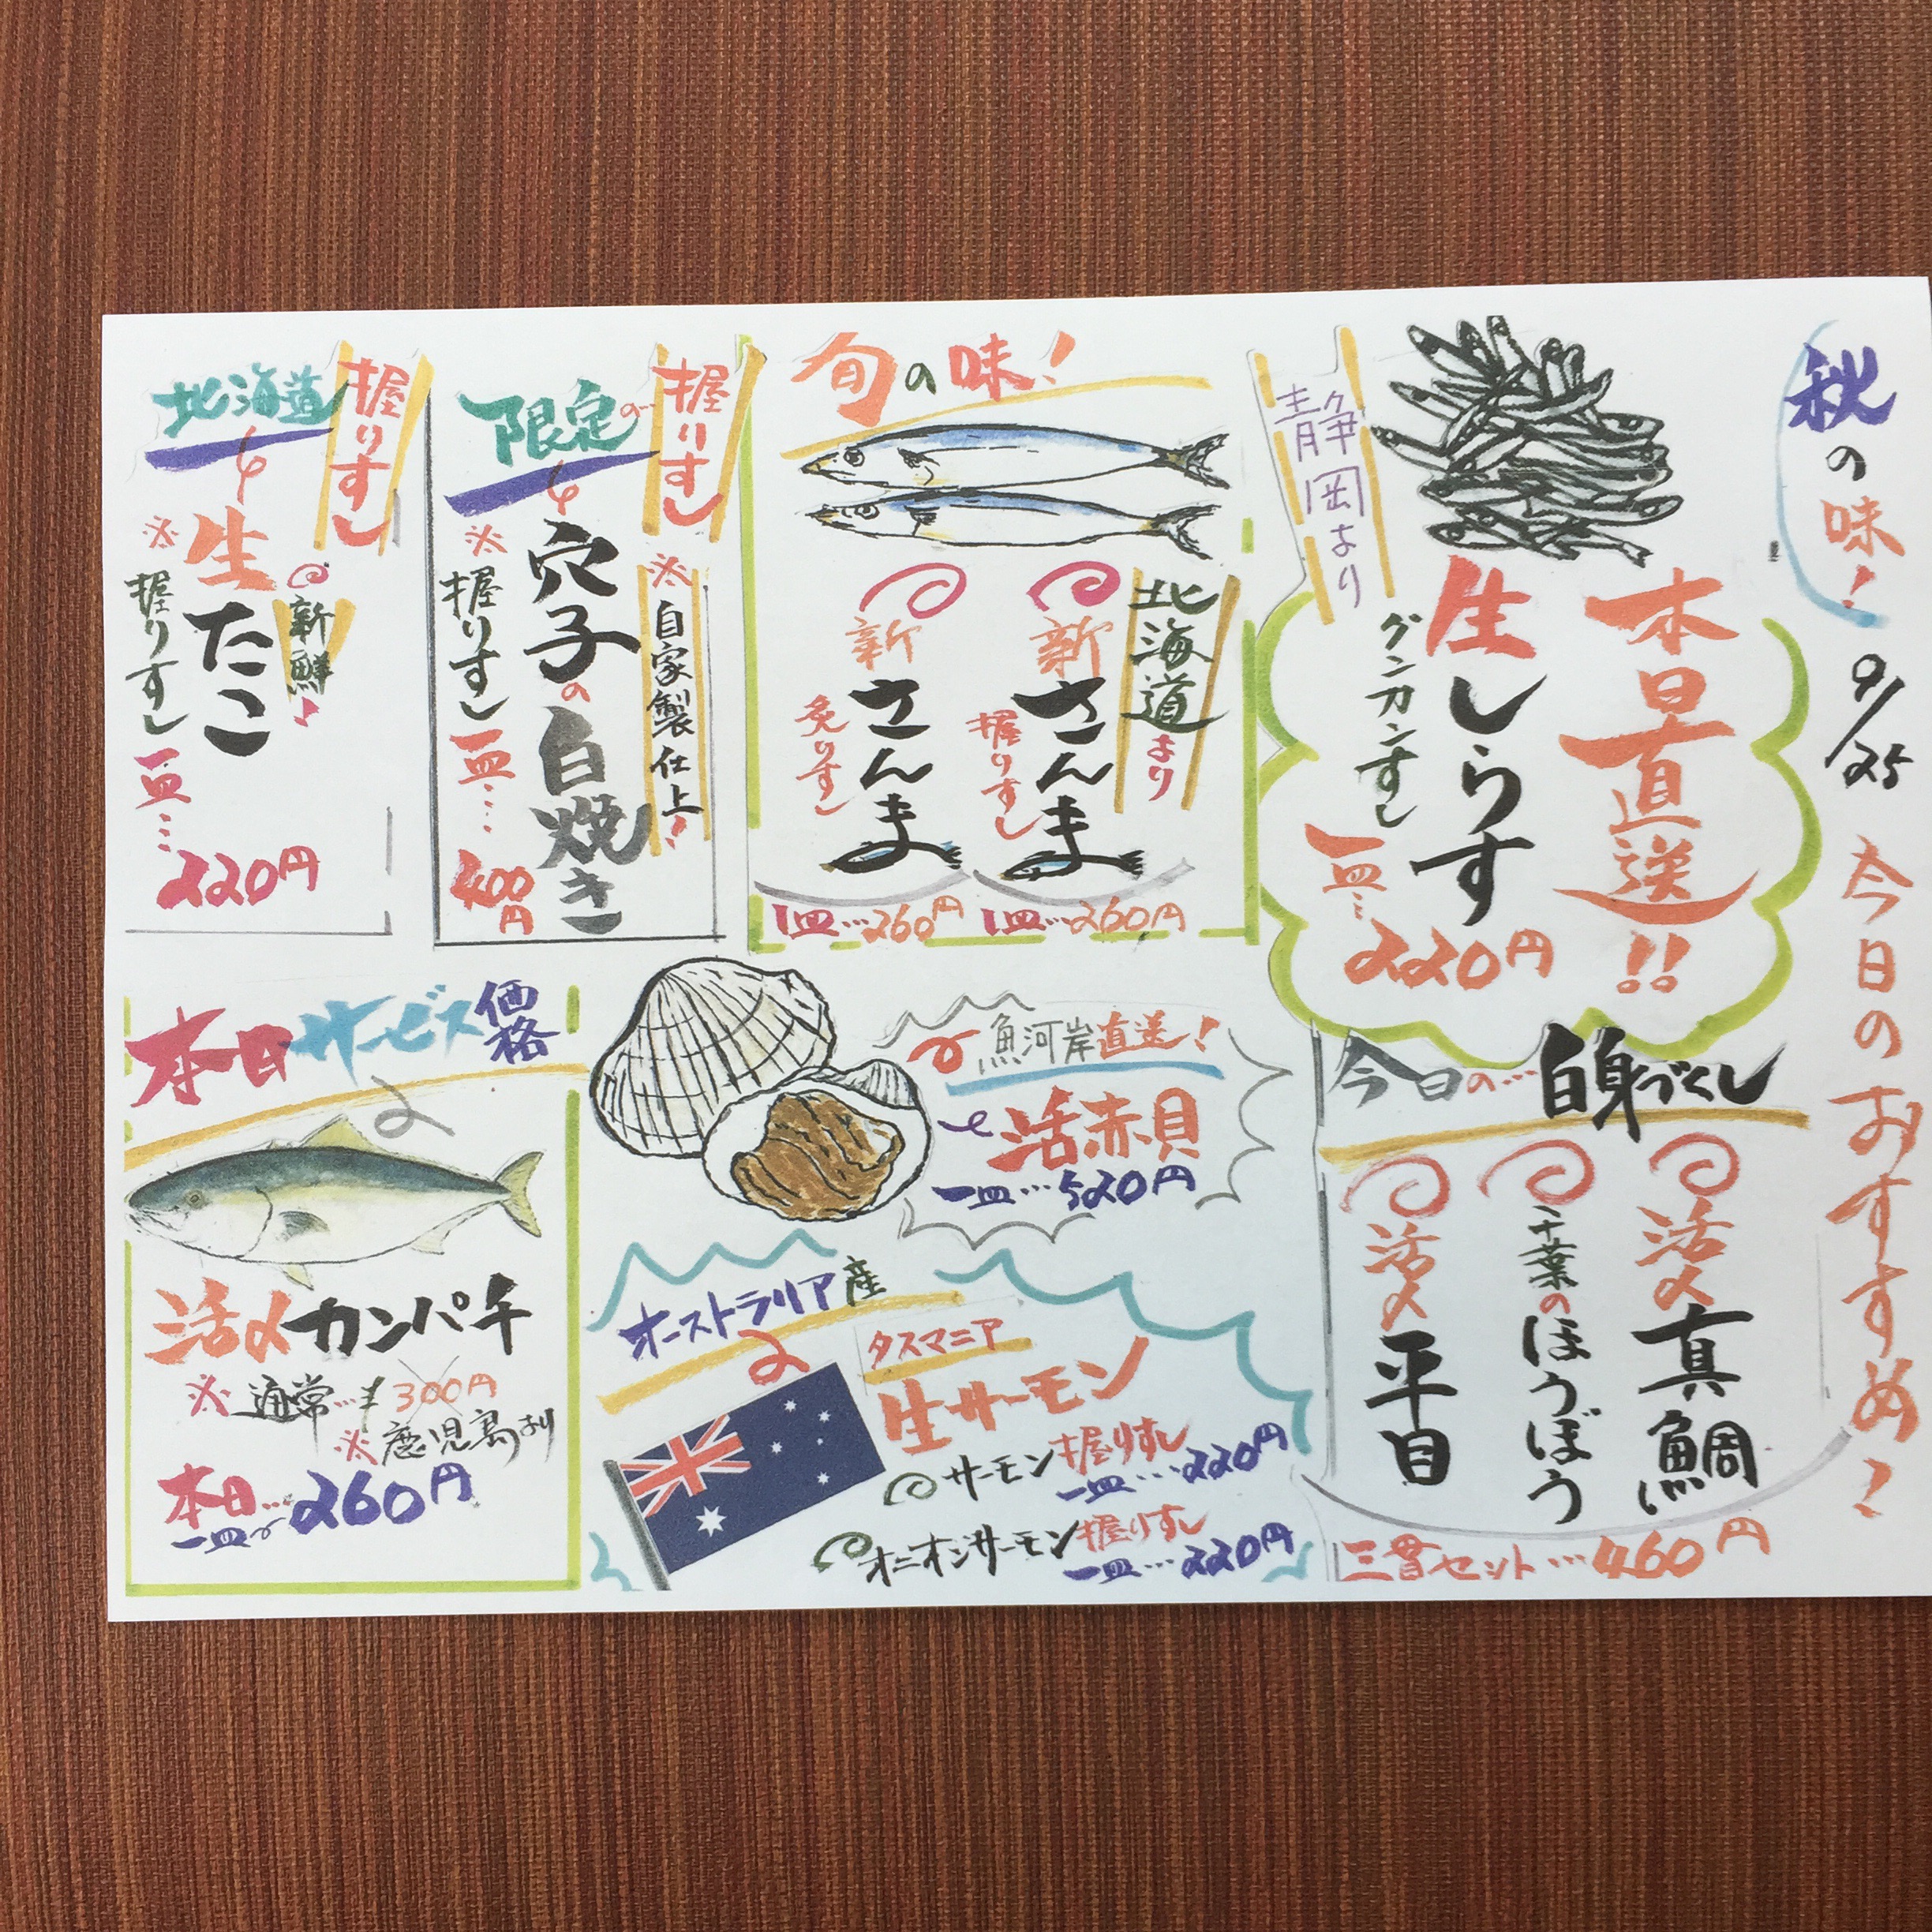 秋の味!
9/25 今日のおすすめ!
静岡より
本日直送!!
生しらす
グンカンすし
一皿… 220円
旬の味!
北海道より
新さんま
握りすし
1皿…260円
新さんま
炙りすし
1皿…260円
限定の…
握りすし
※自家製仕上!
穴子の白焼き
※握りすし
一皿… 400円
北海道
握りすし
新鮮!
生たこ
※握りすし
一皿… 220円
今日の…白身づくし
活〆真鯛
千葉のほうぼう
活〆平目
三貫セット…460円
魚河岸直送!
活赤貝
一皿…520円
オーストラリア産
タスマニア
生サーモン
サーモン握りすし
一皿…220円
オニオンサーモン握りすし
一皿…220円
本日サービス価格
活〆カンパチ
※通常…300円
※鹿児島より
本日…
一皿 260円